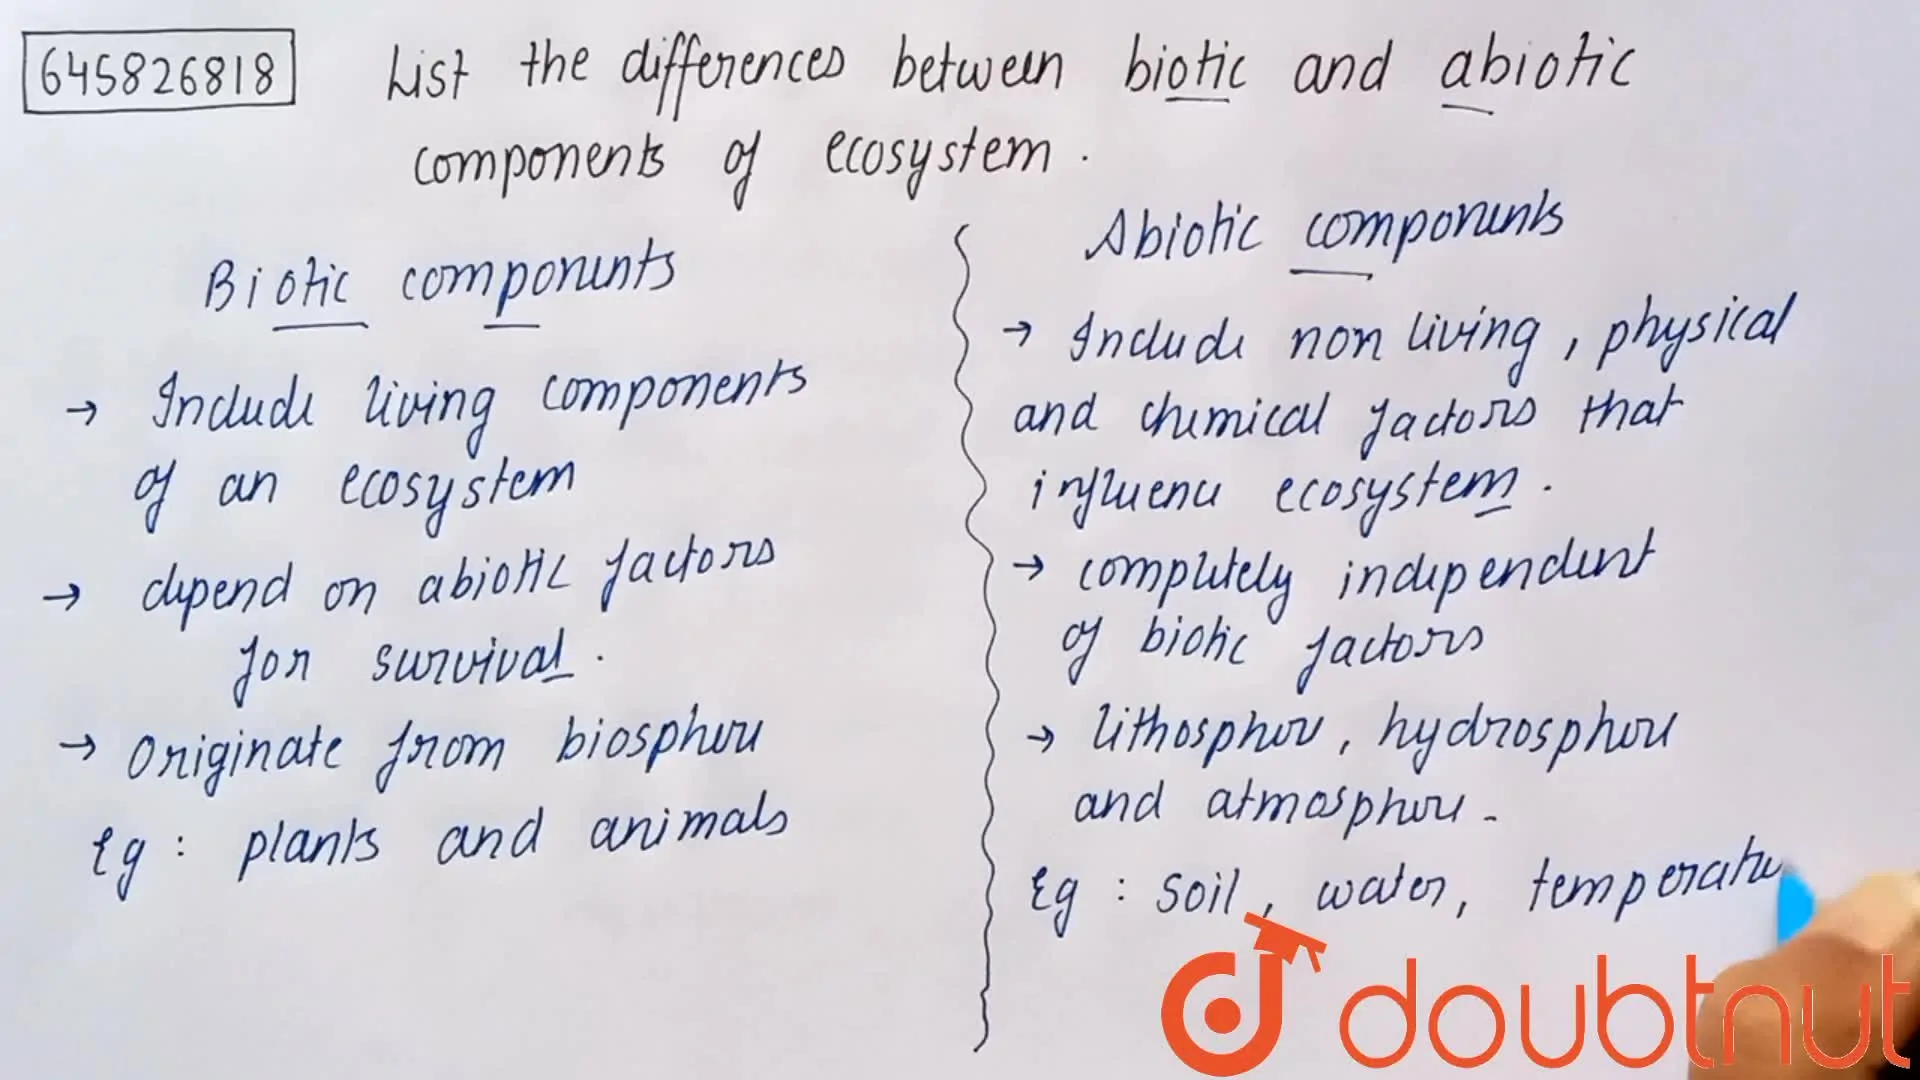 645826818
List the differences between biotic and abiotic
components of ecosystem.
Biotic components
→ Include living components
of an ecosystem
→ depend on abiotic factors
for survival.
→ originate from biosphere
Eg : plants and animals
Abiotic components
→ Include non living, physical
and chemical factors that
influence ecosystem.
→ completely independent
of biotic factors
→ lithosphere, hydrosphere
and atmosphere.
Eg : soil, water, temperatu
doubtnut